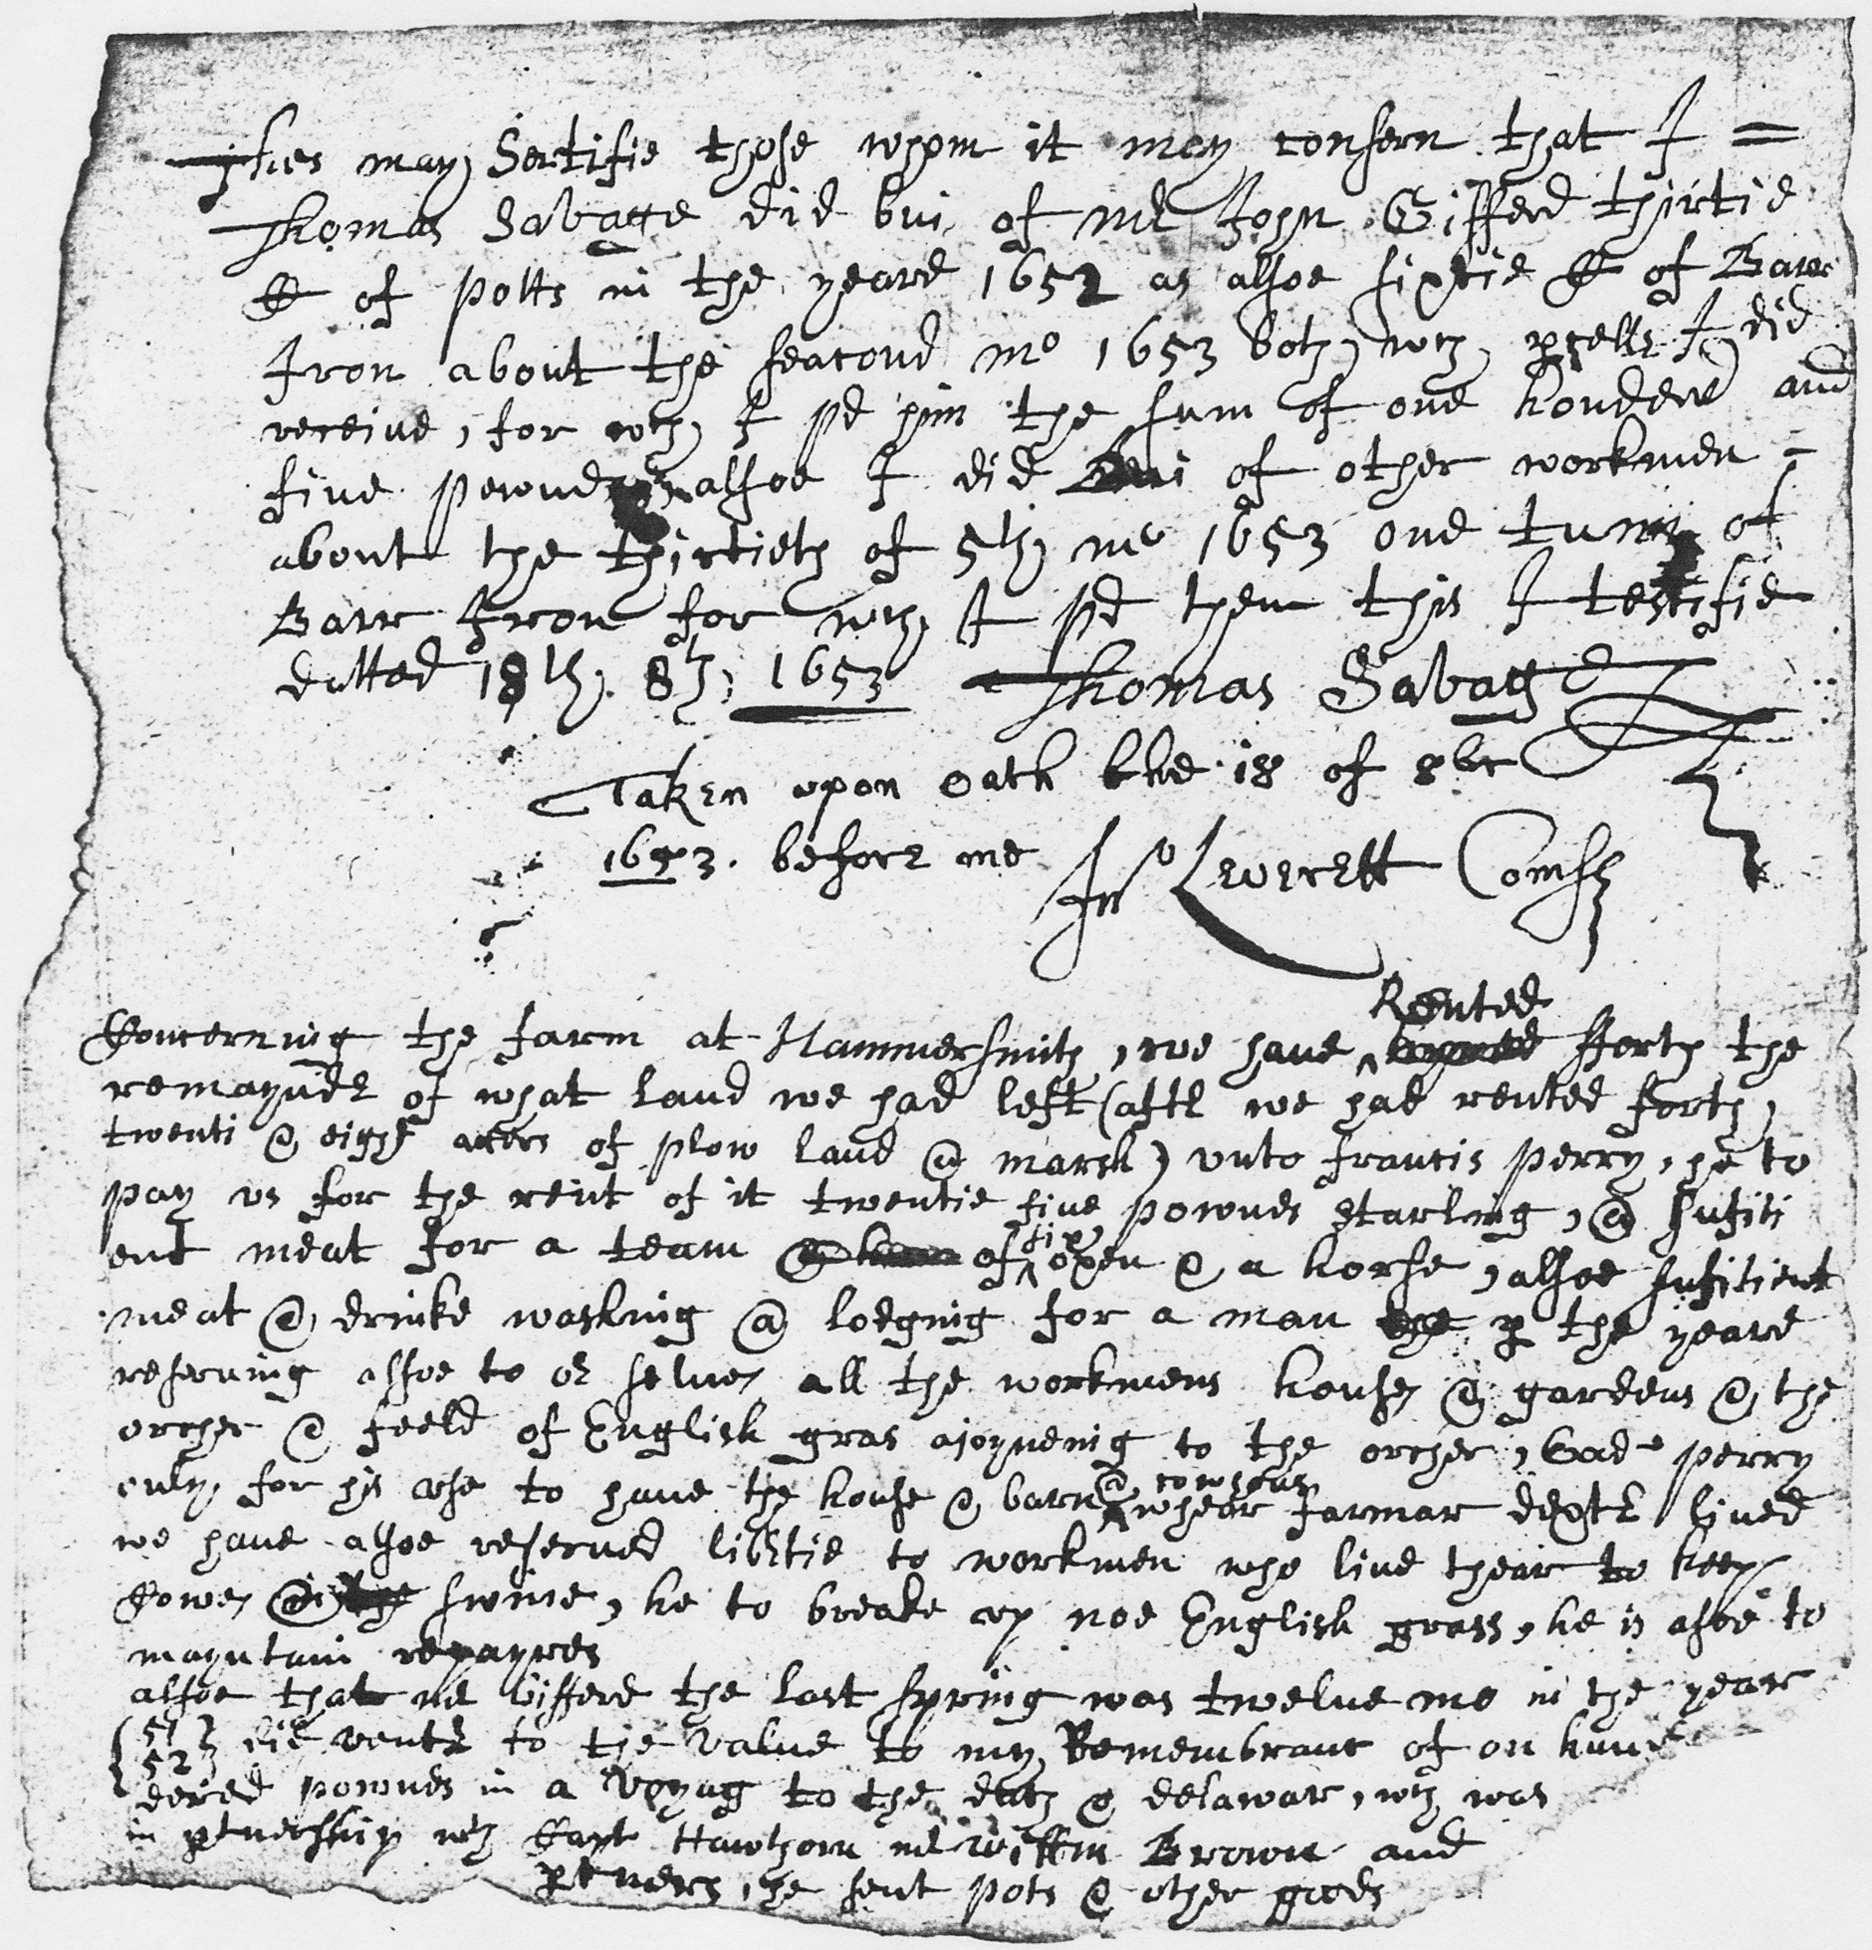 Thes may Sertifie those whom it may consern that I =
Thomas Savage did bui of mr John Gifferd thirtie
C of potts in the yeare 1652 as alsoe sixtie C of Barr
Iron about the seacond mo 1653 both wch pcells I did
receive, for wch I pd him the sum of one honderd and
five pownds alsoe I did bui of other workmen -
about the thirtieth of 5th mo 1653 one tunn of
Barr Iron for wch I pd them this I testifie
datted 18th. 8th; 1653 Thomas Savage
Taken upon oath the 18 of 8br
1653. before me Jno Leverett Comsr
Rented
Concerning the farm at Hammersmith, we have fforth the
remaynder of what land we had left (aftr we had rented forth,
twenti & eight acers of plow land & marsh) unto francis perry, he to
pay us for the rent of it twentie five pownds starling, & sufiti
ent meat for a team of six oxen & a horse, alsoe sufitient
meat & drinke washing & lodging for a man p the yeare
reserving alsoe to or selves all the workmens houses & gardens & the
orcher & feeld of English gras ajoynenig to the orcher, perry
only for his use to have the house & barn & cowhous whear farmar dextr lived
we have alsoe reserved libertie to workmen who live thear to keep
Cowes & swine, he to breake up noe English grass, he is alsoe to
mayntain repayres
alsoe that mr Gifferd the last spring was twelve mo in the year
{51 52} did ventr to the value to my Remembranc of on hun
dered pownds in a voyag to the dutch & delawar, wch was
in ptnership wth Capt Hawthorn mr Brown and
ptners, he sent pots & other goods